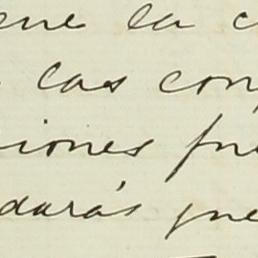 ene la c
las con
iones fue
darás que